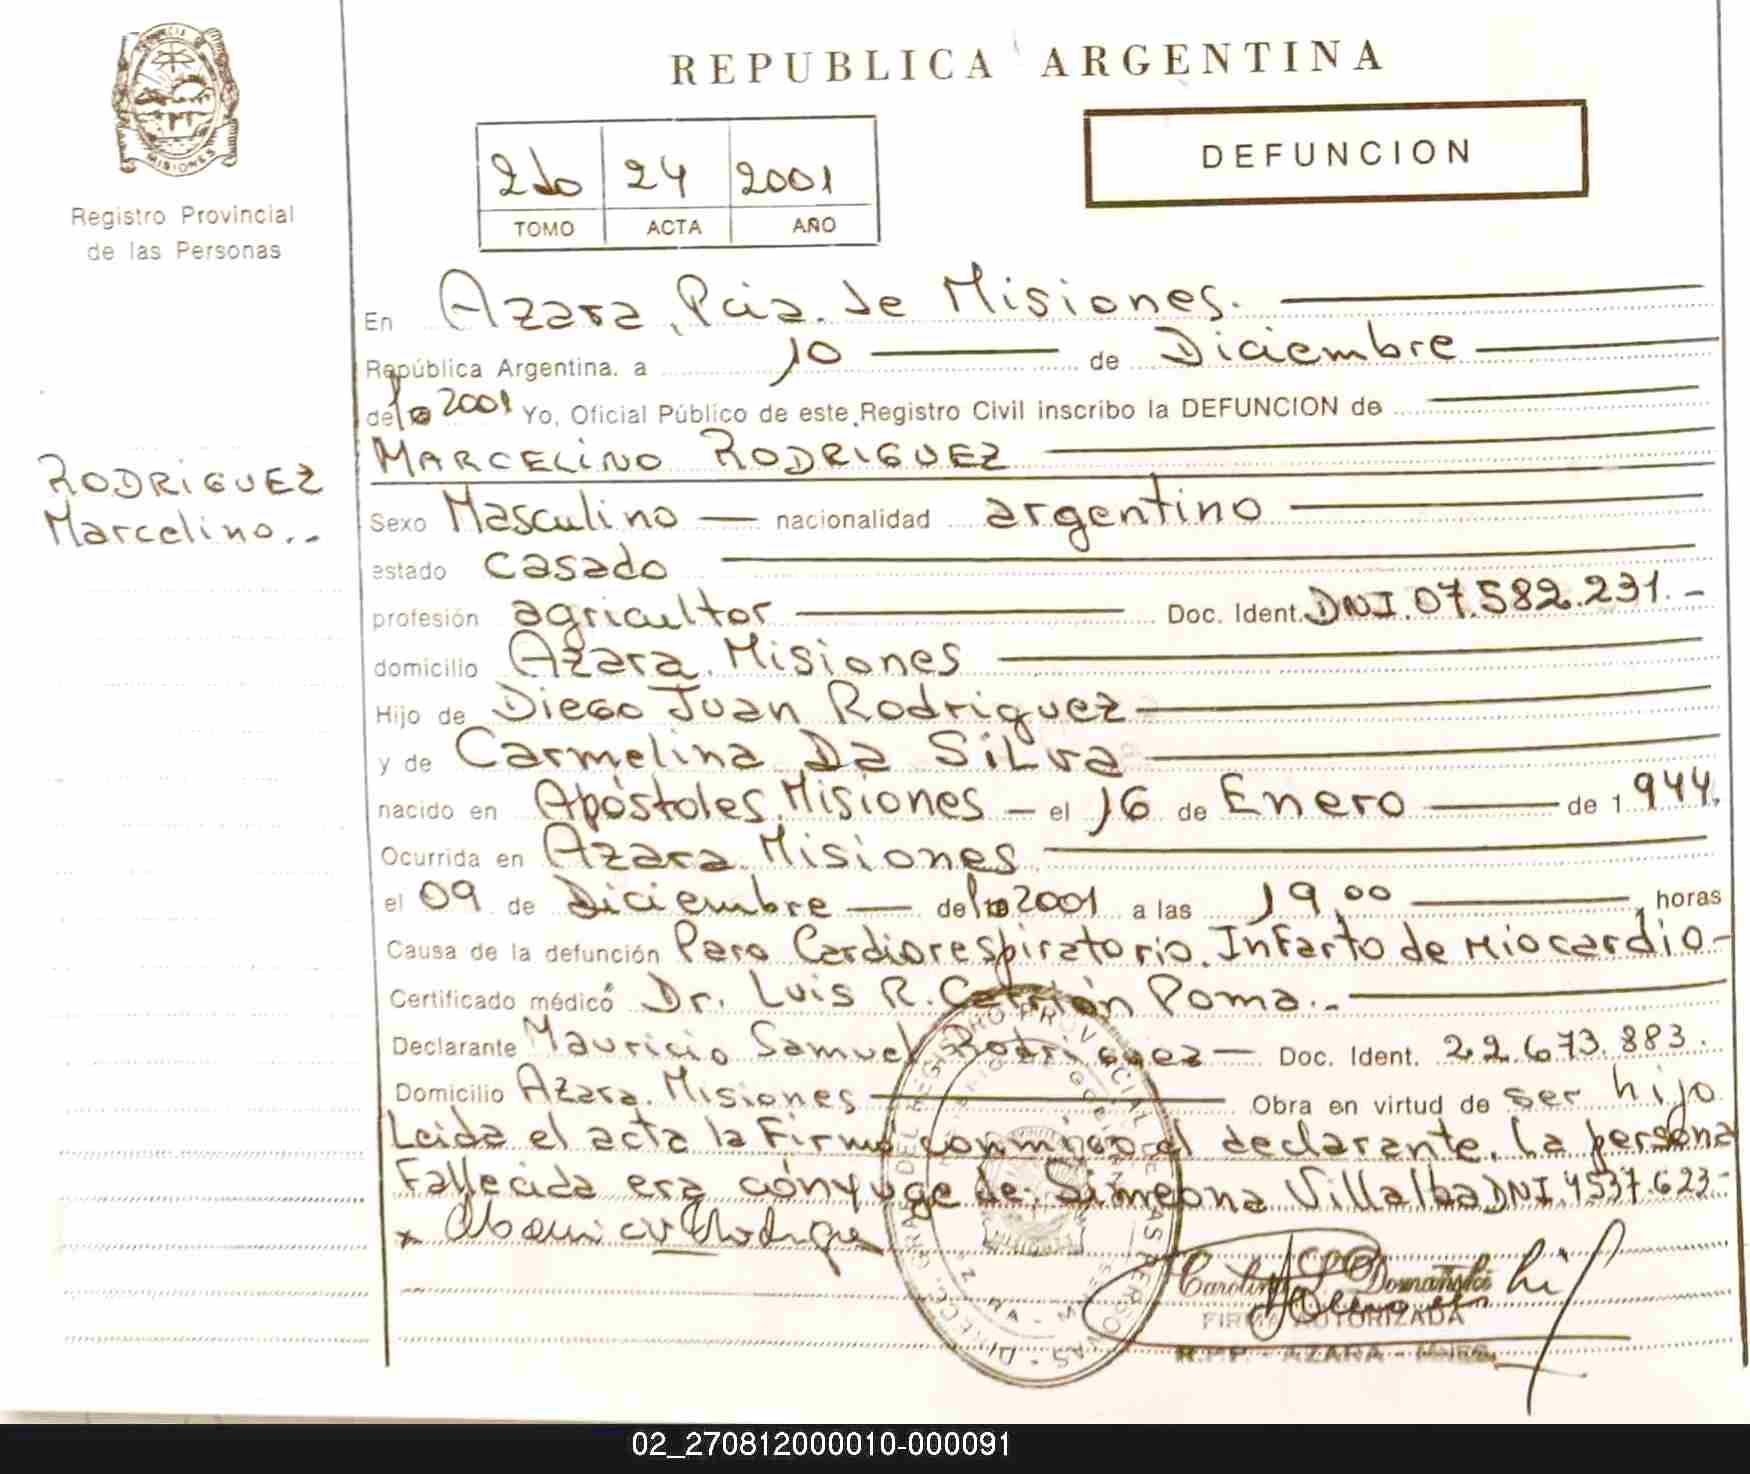 REPUBLICA ARGENTINA
PROVINCIA DE
MISIONES
Registro Provincial
de las Personas
2do 24 2001
TOMO ACTA AÑO
DEFUNCION
En Azara, Pcia. de Misiones.
República Argentina. a 10 de Diciembre
del 2001 Yo, Oficial Público de este Registro Civil inscribo la DEFUNCION de
MARCELINO RODRIGUEZ
RODRIGUEZ
Marcelino..
Sexo Masculino nacionalidad argentino
estado casado
profesión agricultor Doc. Ident. DNI. 07.582.231.-
domicilio Azara. Misiones
Hijo de Diego Juan Rodriguez
y de Carmelina Da Silva
nacido en Apóstoles, Misiones - el 16 de Enero de 1944.
Ocurrida en Azara. Misiones
el 09 de Diciembre del 2001 a las 19,00 horas
Causa de la defunción Paro Cardiorespiratorio. Infarto de Miocardio.-
Certificado médico Dr. Luis R. Carrión Poma.-
Declarante Mauricio Samuel Rodriguez - Doc. Ident. 22.673.883.
Domicilio Azara. Misiones Obra en virtud de ser hijo
Leida el acta la Firma conmigo el declarante. La persona
Fallecida era cónyuge de: Simeona Villalba DNI. 4537.623-
x
FIRMA AUTORIZADA
R.P.P. - AZARA - MNES.
02_270812000010-000091